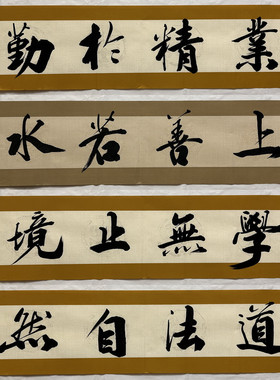 業精於勤
上善若水
學無止境
道法自然